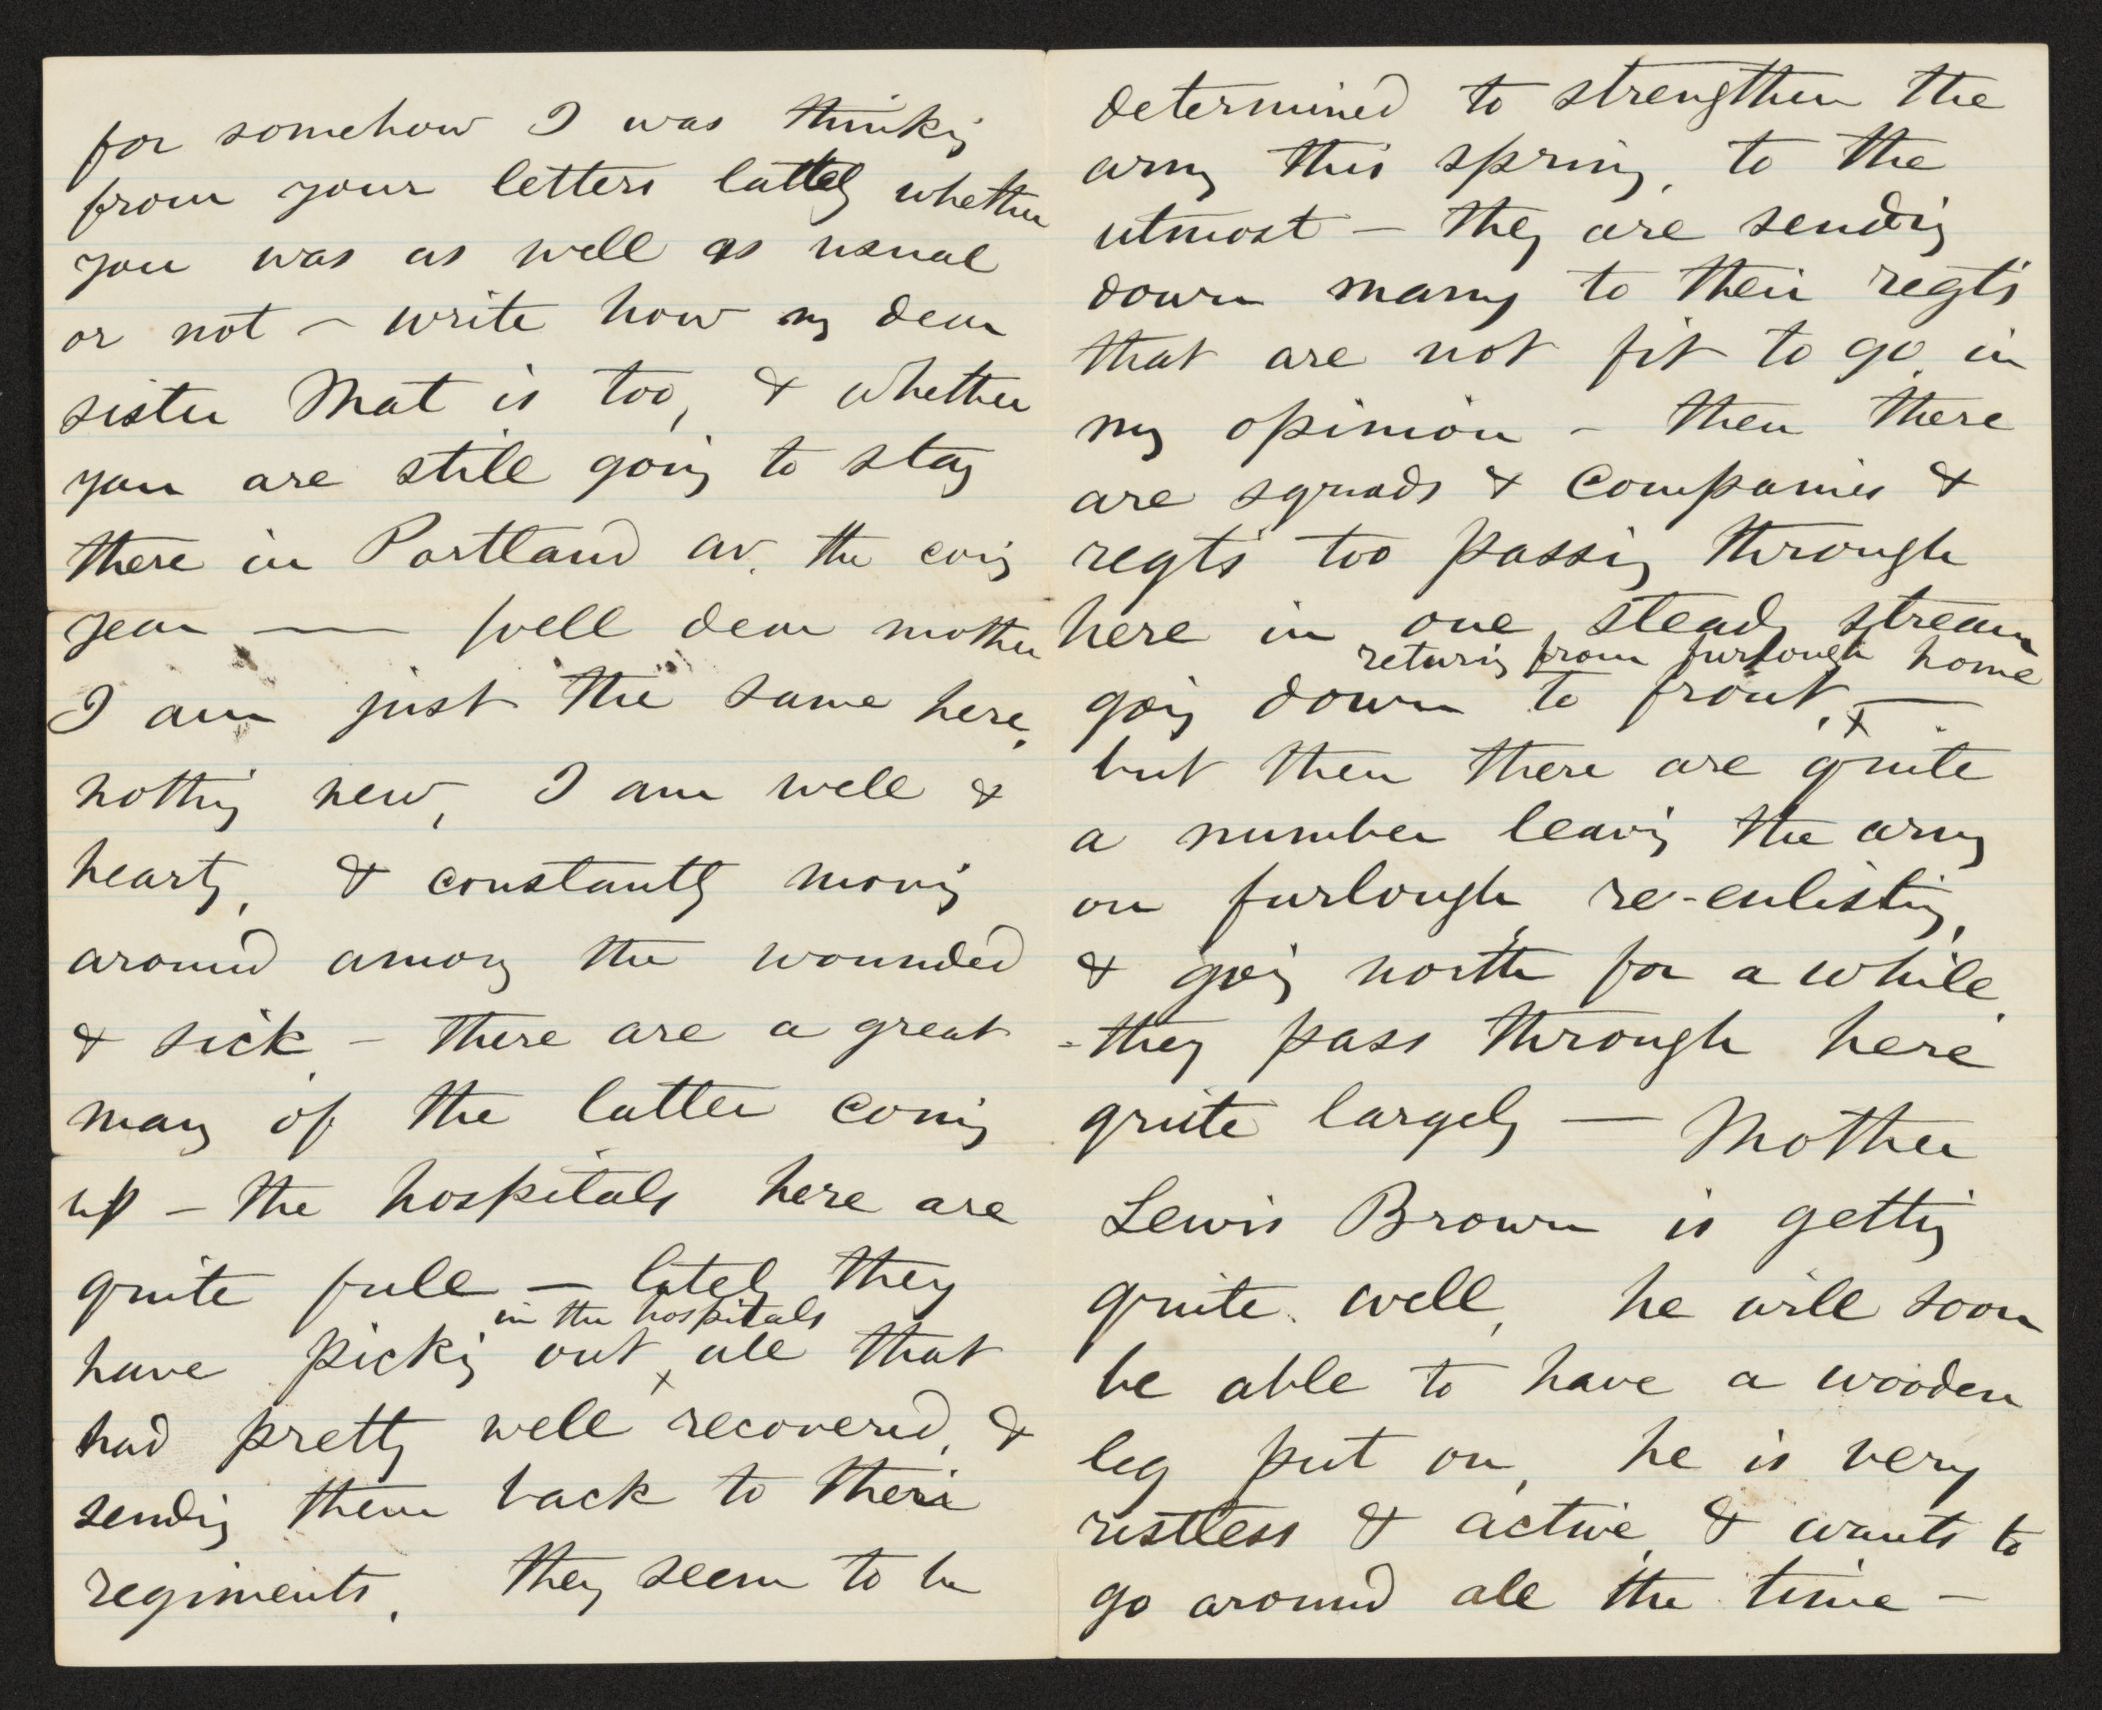 for somehow I was thinking
from your letters lately whether
you was as well as usual
or not — write how my dear
sister Mat is too, & whether
you are still going to stay
there in Portland av. the coming
year —— Well dear mother
I am just the same here,
nothing new, I am well &
hearty, & constantly moving
around among the wounded
& sick – there are a great
many of the latter coming
up – the hospitals here are
quite full – lately they
in the hospitals
have picking out x all that
had pretty well recovered, &
sending them back to their
regiments. they seem to be
determined to strengthen the
army this spring, to the
utmost – they are sending
down many to their reg'ts
that are not fit to go in
my opinion – then there
are squads & companies &
reg'ts too passing through
here in one steady stream
returning from furlough home
going down to front, x —
but then there are quite
a number leaving the army
on furlough, re-enlisting,
& going north for a while
– they pass through here
quite largely — Mother
Lewis Brown is getting
quite well, he will soon
be able to have a wooden
leg put on, he is very
restless & active, & wants to
go around all the time –